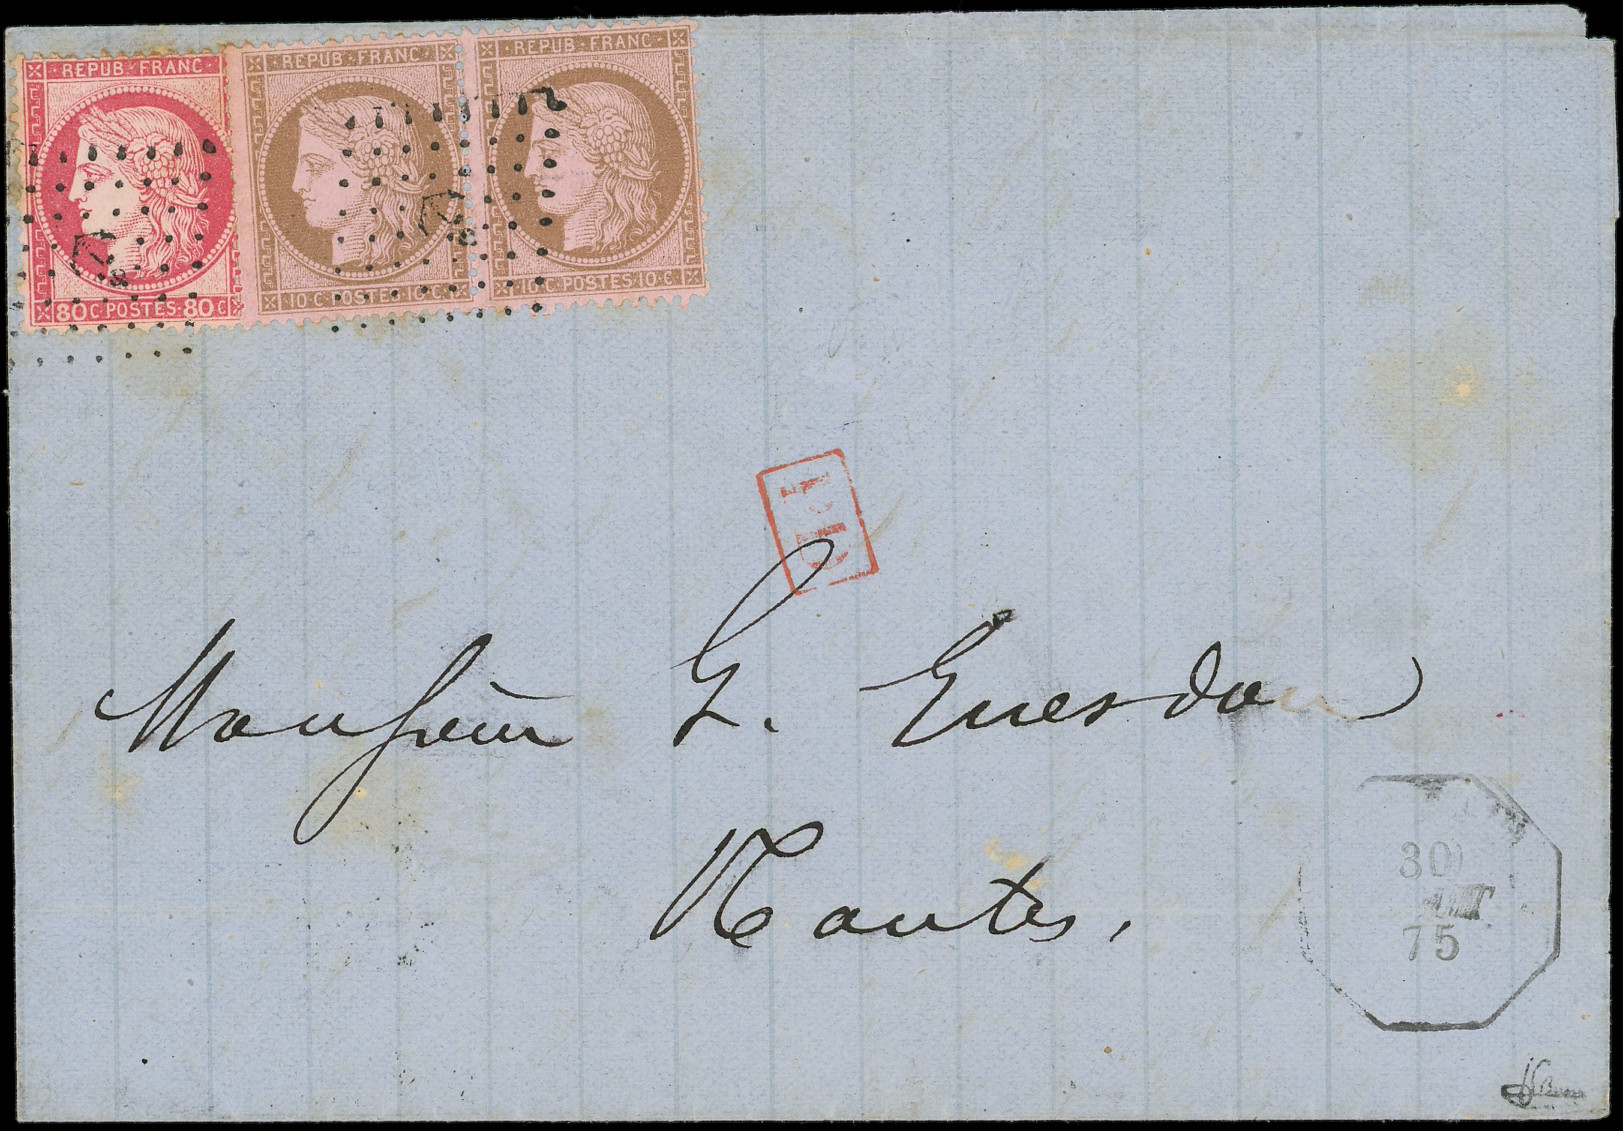 REPUB·FRANC·
80C·POSTES·80C
·REPUB·FRANC·
10·C·POSTES·10·C
·REPUB·FRANC·
10·C·POSTES·10·C
PD
Monsieur G. Guesdon
Nantes,
30
75